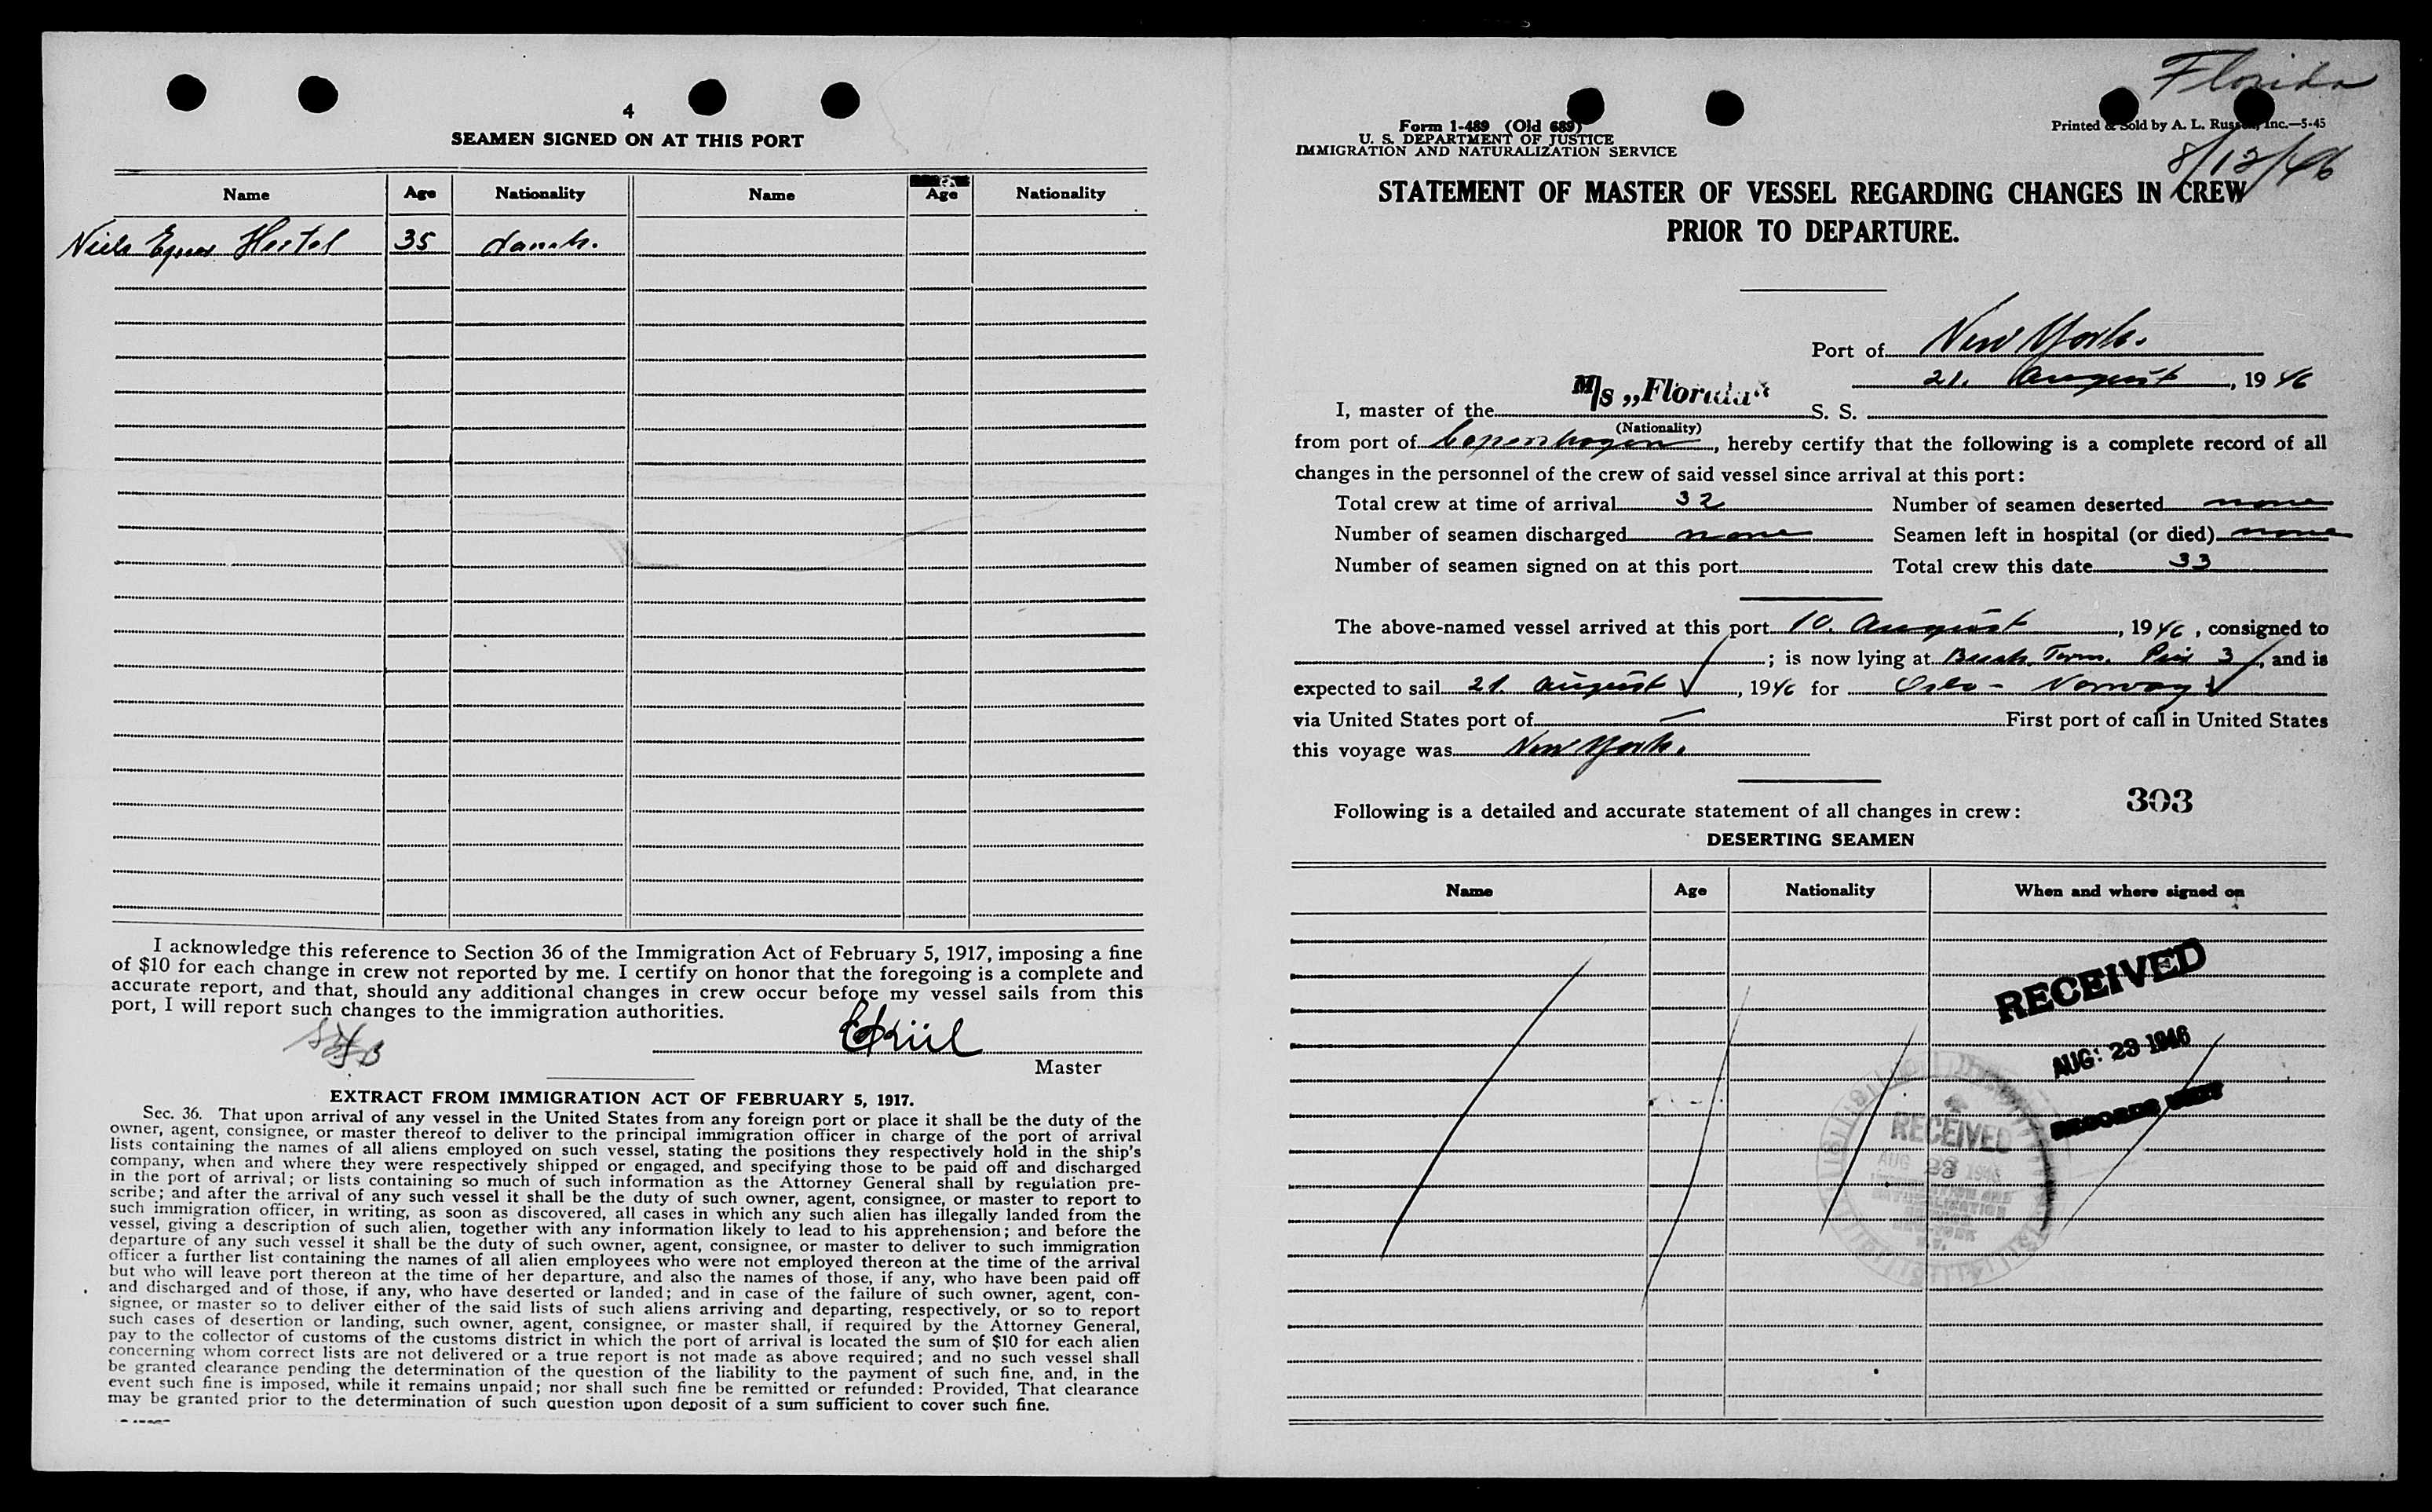 4
SEAMEN SIGNED ON AT THIS PORT
Name Age Nationality Name Age Nationality
Niels 35 danish.
I acknowledge this reference to Section 36 of the Immigration Act of February 5, 1917, imposing a fine
of $10 for each change in crew not reported by me. I certify on honor that the foregoing is a complete and
accurate report, and that, should any additional changes in crew occur before my vessel sails from this
port, I will report such changes to the immigration authorities.
Master
EXTRACT FROM IMMIGRATION ACT OF FEBRUARY 5, 1917.
Sec. 36. That upon arrival of any vessel in the United States from any foreign port or place it shall be the duty of the
owner, agent, consignee, or master thereof to deliver to the principal immigration officer in charge of the port of arrival
lists containing the names of all aliens employed on such vessel, stating the positions they respectively hold in the ship's
company, when and where they were respectively shipped or engaged, and specifying those to be paid off and discharged
in the port of arrival; or lists containing so much of such information as the Attorney General shall by regulation pre-
scribe; and after the arrival of any such vessel it shall be the duty of such owner, agent, consignee, or master to report to
such immigration officer, in writing, as soon as discovered, all cases in which any such alien has illegally landed from the
vessel, giving a description of such alien, together with any information likely to lead to his apprehension; and before the
departure of any such vessel it shall be the duty of such owner, agent, consignee, or master to deliver to such immigration
officer a further list containing the names of all alien employees who were not employed thereon at the time of the arrival
but who will leave port thereon at the time of her departure, and also the names of those, if any, who have been paid off
and discharged and of those, if any, who have deserted or landed; and in case of the failure of such owner, agent, con-
signee, or master so to deliver either of the said lists of such aliens arriving and departing, respectively, or so to report
such cases of desertion or landing, such owner, agent, consignee, or master shall, if required by the Attorney General,
pay to the collector of customs of the customs district in which the port of arrival is located the sum of $10 for each alien
concerning whom correct lists are not delivered or a true report is not made as above required; and no such vessel shall
be granted clearance pending the determination of the question of the liability to the payment of such fine, and, in the
event such fine is imposed, while it remains unpaid; nor shall such fine be remitted or refunded: Provided, That clearance
may be granted prior to the determination of such question upon deposit of a sum sufficient to cover such fine.
Florida
8/12/46
Form 1-489 (Old 689)
U. S. DEPARTMENT OF JUSTICE
IMMIGRATION AND NATURALIZATION SERVICE
Printed & Sold by A. L. Russell, Inc.—5-45
STATEMENT OF MASTER OF VESSEL REGARDING CHANGES IN CREW
PRIOR TO DEPARTURE.
Port of New York.
21. August, 19 46
I, master of the M/S „Florida“ S. S.
(Nationality)
from port of Copenhagen, hereby certify that the following is a complete record of all
changes in the personnel of the crew of said vessel since arrival at this port:
Total crew at time of arrival 32 Number of seamen deserted none
Number of seamen discharged none Seamen left in hospital (or died) none
Number of seamen signed on at this port Total crew this date 33
The above-named vessel arrived at this port 10. August, 1946, consigned to
; is now lying at Bush Term. Pier 3, and is
expected to sail 21. August, 1946 for Oslo - Norway
via United States port of — First port of call in United States
this voyage was New York.
303
Following is a detailed and accurate statement of all changes in crew:
DESERTING SEAMEN
Name Age Nationality When and where signed on
RECEIVED
AUG 23 1946
RECORDS UNIT
RECEIVED
AUG 1946